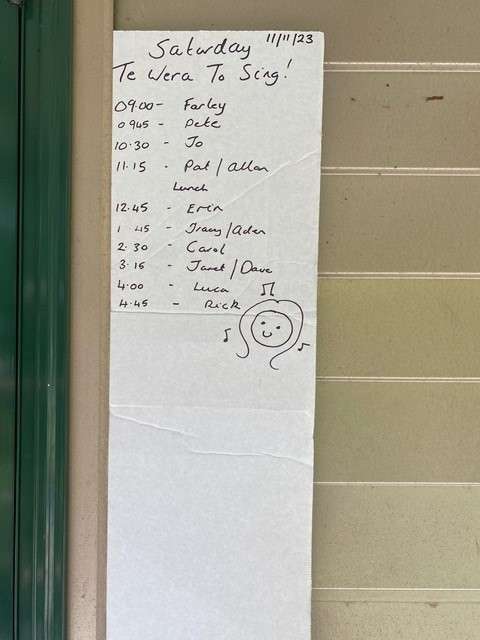 11/11/23
Saturday
Te Wera To Sing!
09.00- Farley
0945 - Pete
10.30 - Jo
11.15 - Pat / Allan
Lunch
12.45 - Erin
1 45 - Tracy/Aden
2.30 - Carol
3.15 - Janet/Dave
4.00 - Luca
4.45 - Rick